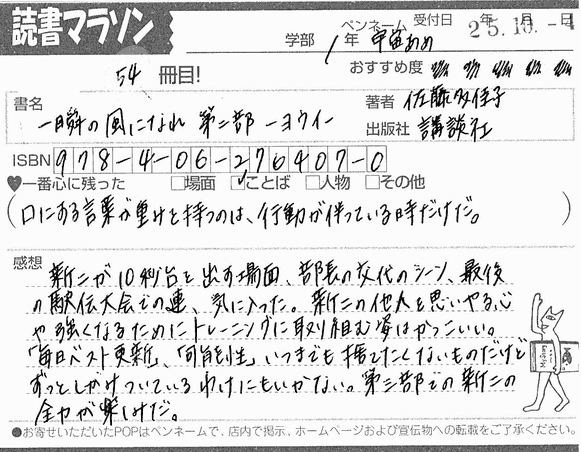 読書マラソン
学部 1年 ペンネーム 宇宙あめ 受付日 25年10月-4日
54 冊目!
おすすめ度
書名
一瞬の風になれ 第二部 ーヨウイー
著者 佐藤多佳子
出版社 講談社
ISBN 978-4-06-276407-0
♥一番心に残った □場面 ☑ことば □人物 □その他
(口にある言葉が重みを持つのは、行動が伴っている時だけだ。)
感想
新二が10秒台を出す場面、部長の交代のシーン、最後
の駅伝大会での連、気に入った。新二の他人を思いやる心
や強くなるためにトレーニングに取り組む姿はかっこいい。
「毎日ベスト更新」、「可能性」いつまでも捨てたくないものだけど
ずっとしがみついているわけにもいかない。第三部での新二の
全力が楽しみだ。
●お寄せいただいたPOPはペンネームで、店内で掲示、ホームページおよび宣伝物への転載をご了承ください。